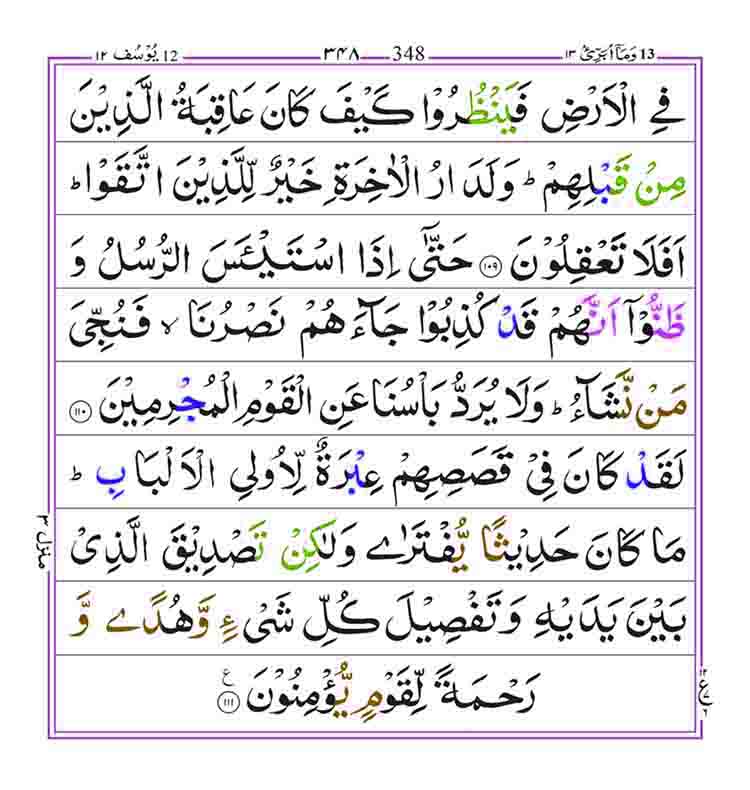 13 وَمَآ اُبَرِّئُ ١٣ 348 ٣٤٨ 12 يُوْسُف ١٢
فِي الْاَرْضِ فَيَنْظُرُوْا كَيْفَ كَانَ عَاقِبَةُ الَّذِيْنَ
مِنْ قَبْلِهِمْ ؕ وَلَدَارُ الْاٰخِرَةِ خَيْرٌ لِّلَّذِيْنَ اتَّقَوْا ؕ
اَفَلَا تَعْقِلُوْنَ ۝١٠٩ حَتّٰٓى اِذَا اسْتَيْـَٔسَ الرُّسُلُ وَ
ظَنُّوْۤا اَنَّهُمْ قَدْ كُذِبُوْا جَآءَهُمْ نَصْرُنَا ۙ فَنُجِّىَ
مَنْ نَّشَآءُ ؕ وَلَا يُرَدُّ بَاْسُنَا عَنِ الْقَوْمِ الْمُجْرِمِيْنَ ۝١١٠
لَقَدْ كَانَ فِيْ قَصَصِهِمْ عِبْرَةٌ لِّاُولِي الْاَلْبَابِ ؕ
مَا كَانَ حَدِيْثًا يُّفْتَرٰى وَلٰكِنْ تَصْدِيْقَ الَّذِيْ
بَيْنَ يَدَيْهِ وَتَفْصِيْلَ كُلِّ شَيْءٍ وَّهُدًى وَّ
رَحْمَةً لِّقَوْمٍ يُّؤْمِنُوْنَ ۝١١١ ع
منزل ٣
١٢
ع
٦